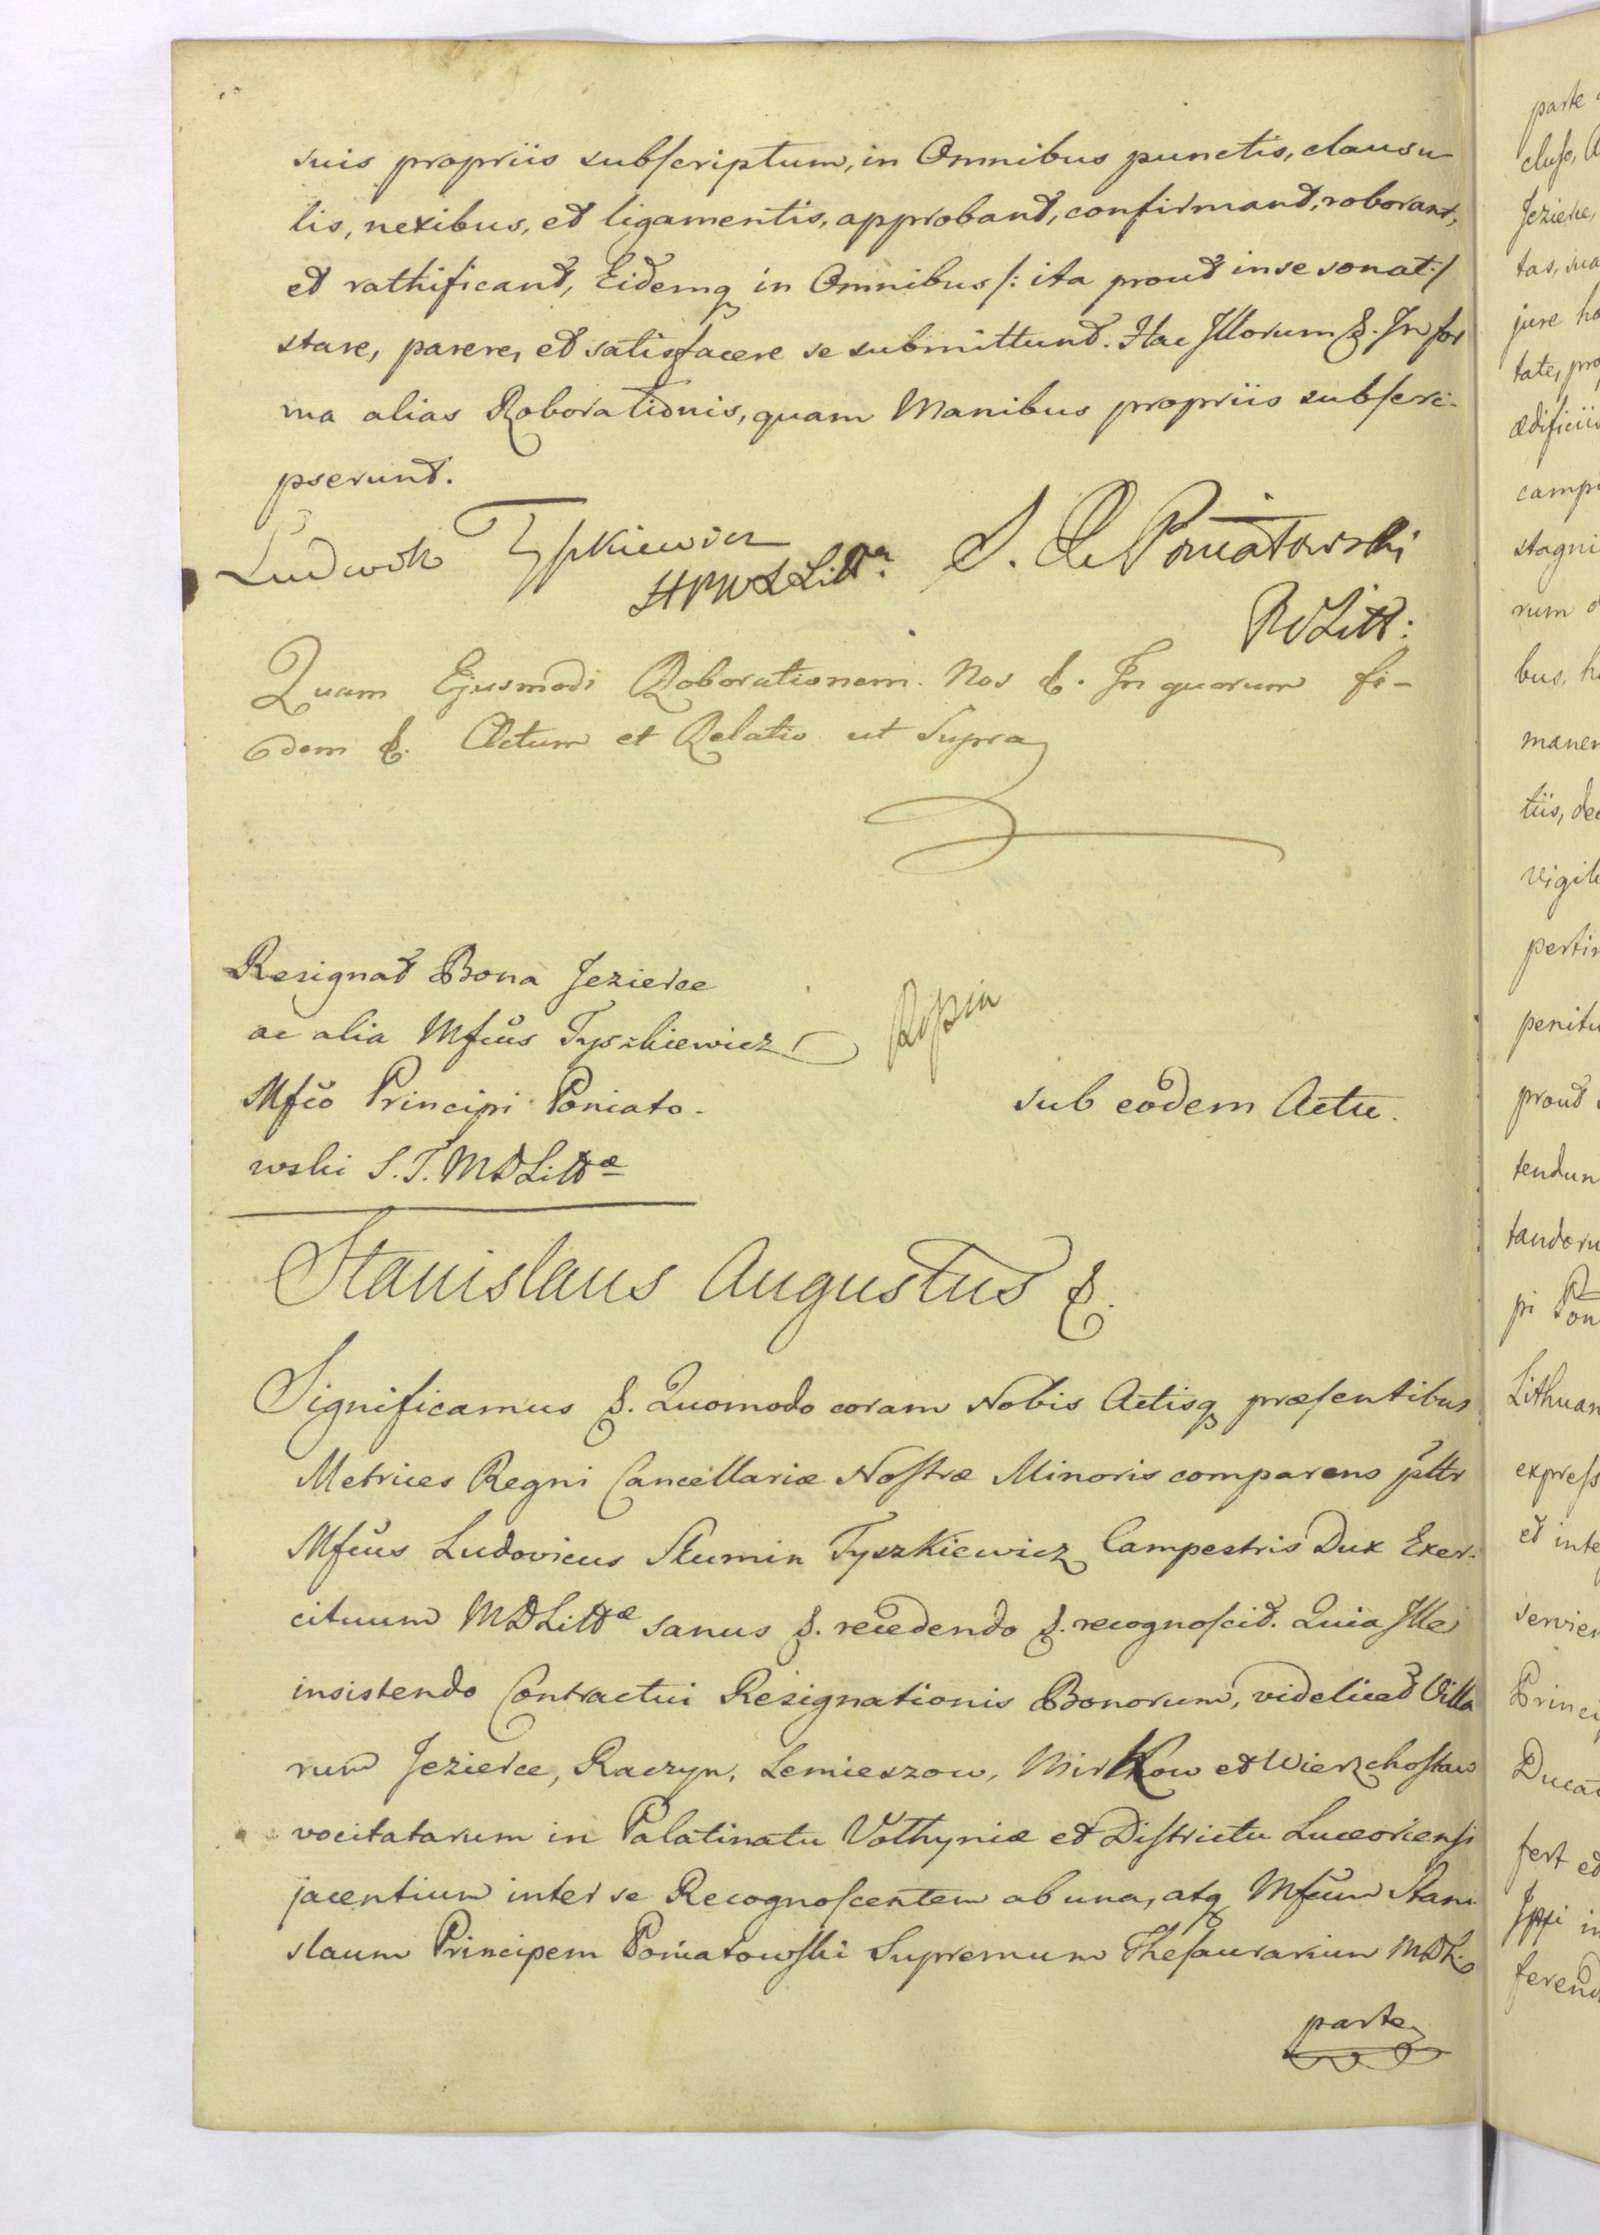 suis propriis subscriptum, in Omnibus punctis, clausu
lis, nexibus, et ligamentis, approbant, confirmant, roborant,
et rathificant, Eidemq in Omnibus /: ita prout in se sonat :/
stare, parere, et satisfacere se submittunt. Hac Illorum &. In for
ma alias Roborationis, quam Manibus propriis subscri-
pserunt.
Ludwik Tyszkiewicz
S. X Poniatowski
Quam Ejusmodi Roborationem. Nos &. In quorum fi-
dem &. Actum et Relatio ut Supra
Resignat Bona Jezierce
ac alia Mfcus Tyszkiewicz
Mfco Principi Poniato-
wski S. T. MDLittæ
sub eodem Actu.
Stanislaus Augustus &.
Significamus &. Quomodo coram Nobis Actisq præsentibus
Metrices Regni Cancellariæ Nostræ Minoris comparens pltr
Mfcus Ludovicus Skumin Tyszkiewicz Campestris Dux Exer-
cituum MDLittæ sanus &. recedendo &. recognoscit. Quia Ille
insistendo Contractui Resignationis Bonorum, videlicet Villa
rum Jezierce, Raczyn, Lemieszow, Mirkow et Wierzchostaw
vocitatarum in Palatinatu Volhyniæ et Districtu Luceoriensi
jacentium inter se Recognoscentem ab una, atq Mfcum Stani
slaum Principem Poniatowski Supremum Thesaurarium MDL.
parte
parte
Jeziere,
tas,
jure
ædificiis
stagni
rum
bus,
tiis,
penitu
prout
tendun
pi Pon
Lithuan
express
et inte
servien
Princi
Ducat
fert et